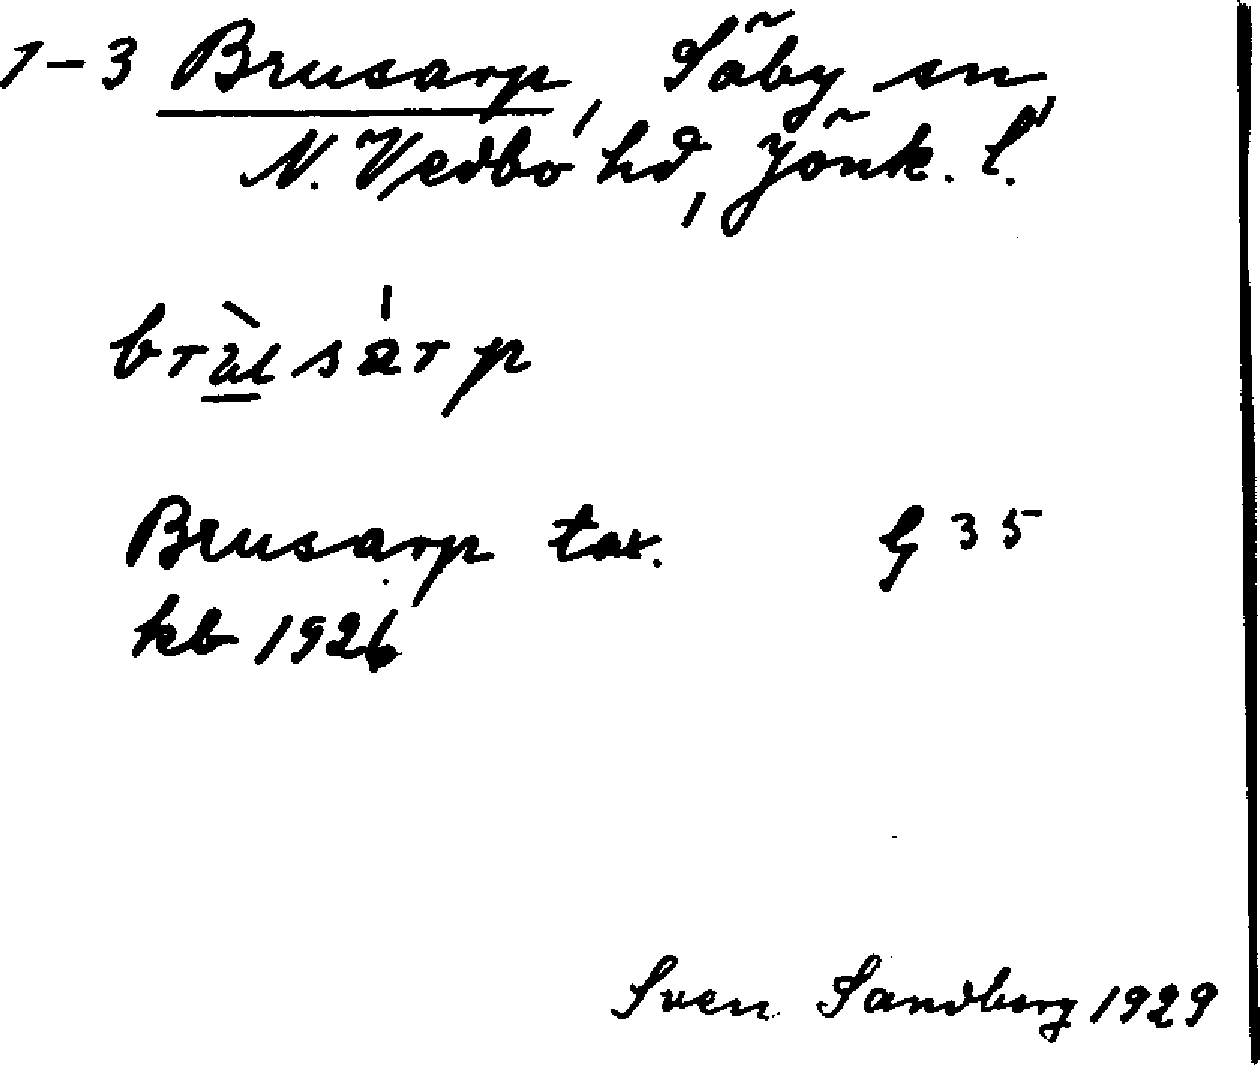 1-3 Brusarp, Säby sn,
N. Vedbo hd, Jönk. l.
Brusarp tax. G 35
kb 1926
Sven Sandberg 1929